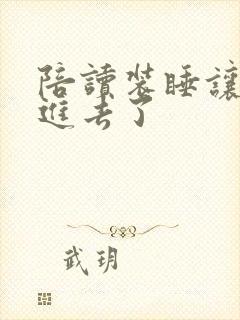 陪讀裝睡讓
進去了
武玥